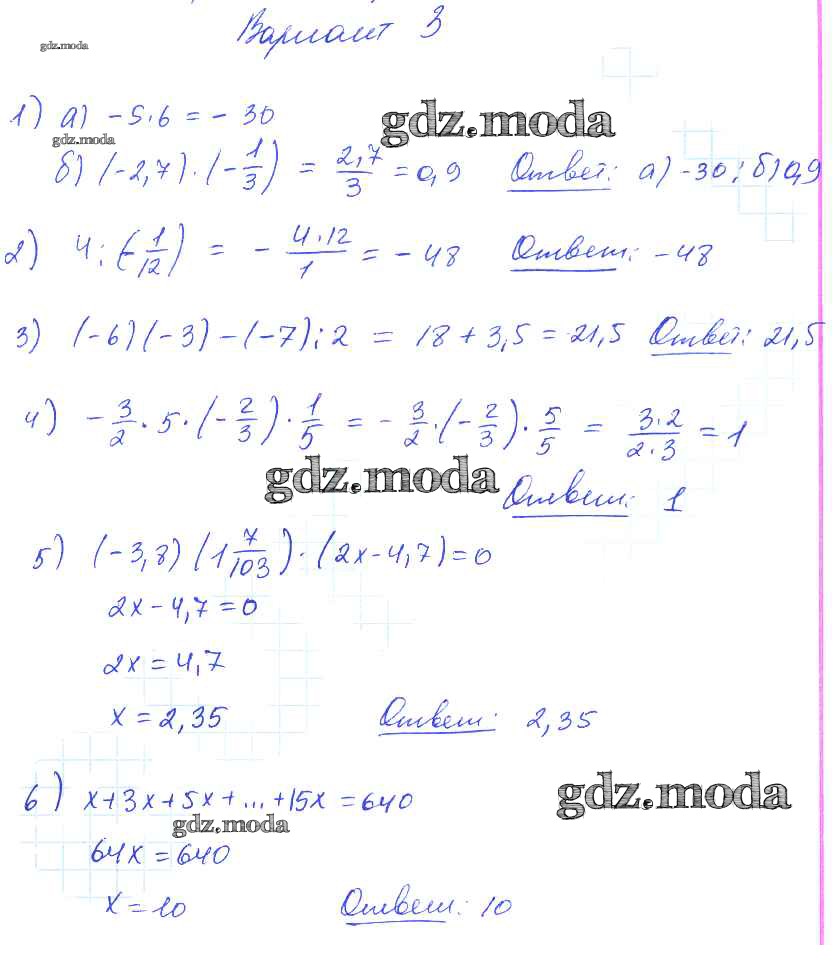 Вариант 3
gdz.moda
1) а) -5·6 = -30
gdz.moda
gdz.moda
б) (-2,7)·(-1/3) = 2,7/3 = 0,9 Ответ: а) -30; б) 0,9
2) 4:(-1/12) = -4·12/1 = -48 Ответ: -48
3) (-6)(-3)-(-7):2 = 18+3,5 = 21,5 Ответ: 21,5
4) -3/2·5·(-2/3)·1/5 = -3/2·(-2/3)·5/5 = 3·2/2·3 = 1
gdz.moda
Ответ: 1
5) (-3,8)(1 7/103)·(2x-4,7)=0
2x-4,7=0
2x=4,7
x=2,35 Ответ: 2,35
6) x+3x+5x+...+15x=640
gdz.moda
gdz.moda
64x=640
x=10 Ответ: 10